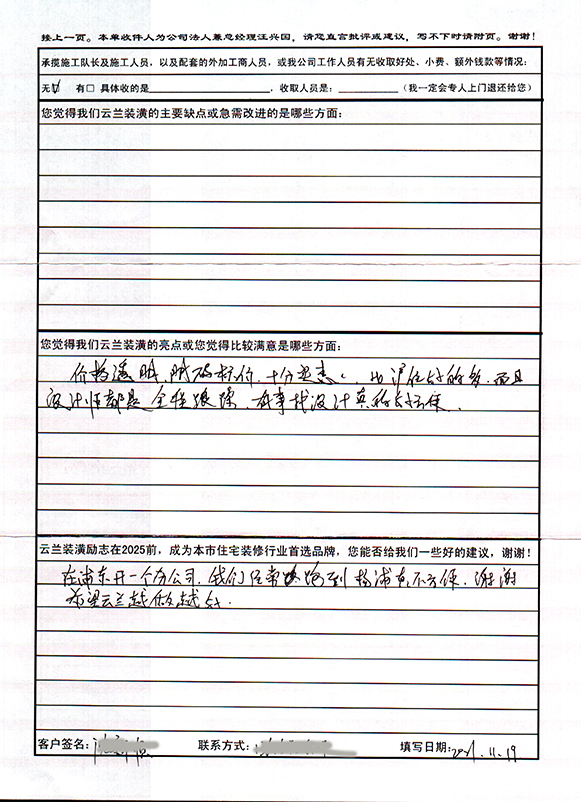 接上一页。本单收件人为公司法人兼总经理汪兴国，请您直言批评或建议，写不下时请附页。谢谢！
承揽施工队长及施工人员，以及配套的外加工商人员，或我公司工作人员有无收取好处、小费、额外钱款等情况：
无☑ 有□ 具体收的是____________________，收取人员是：__________（我一定会专人上门退还给您）
您觉得我们云兰装潢的主要缺点或急需改进的是哪些方面：
您觉得我们云兰装潢的亮点或您觉得比较满意是哪些方面：
价格透明，明码标价，十分满意，
设计师都是全程跟踪，有事找设计真的好方便。
云兰装潢励志在2025前，成为本市住宅装修行业首选品牌，您能否给我们一些好的建议，谢谢！
在浦东开一个分公司，我们经常跑到杨浦真不方便，谢谢
希望云兰越做越好。
客户签名： 联系方式： 填写日期：2021.11.19